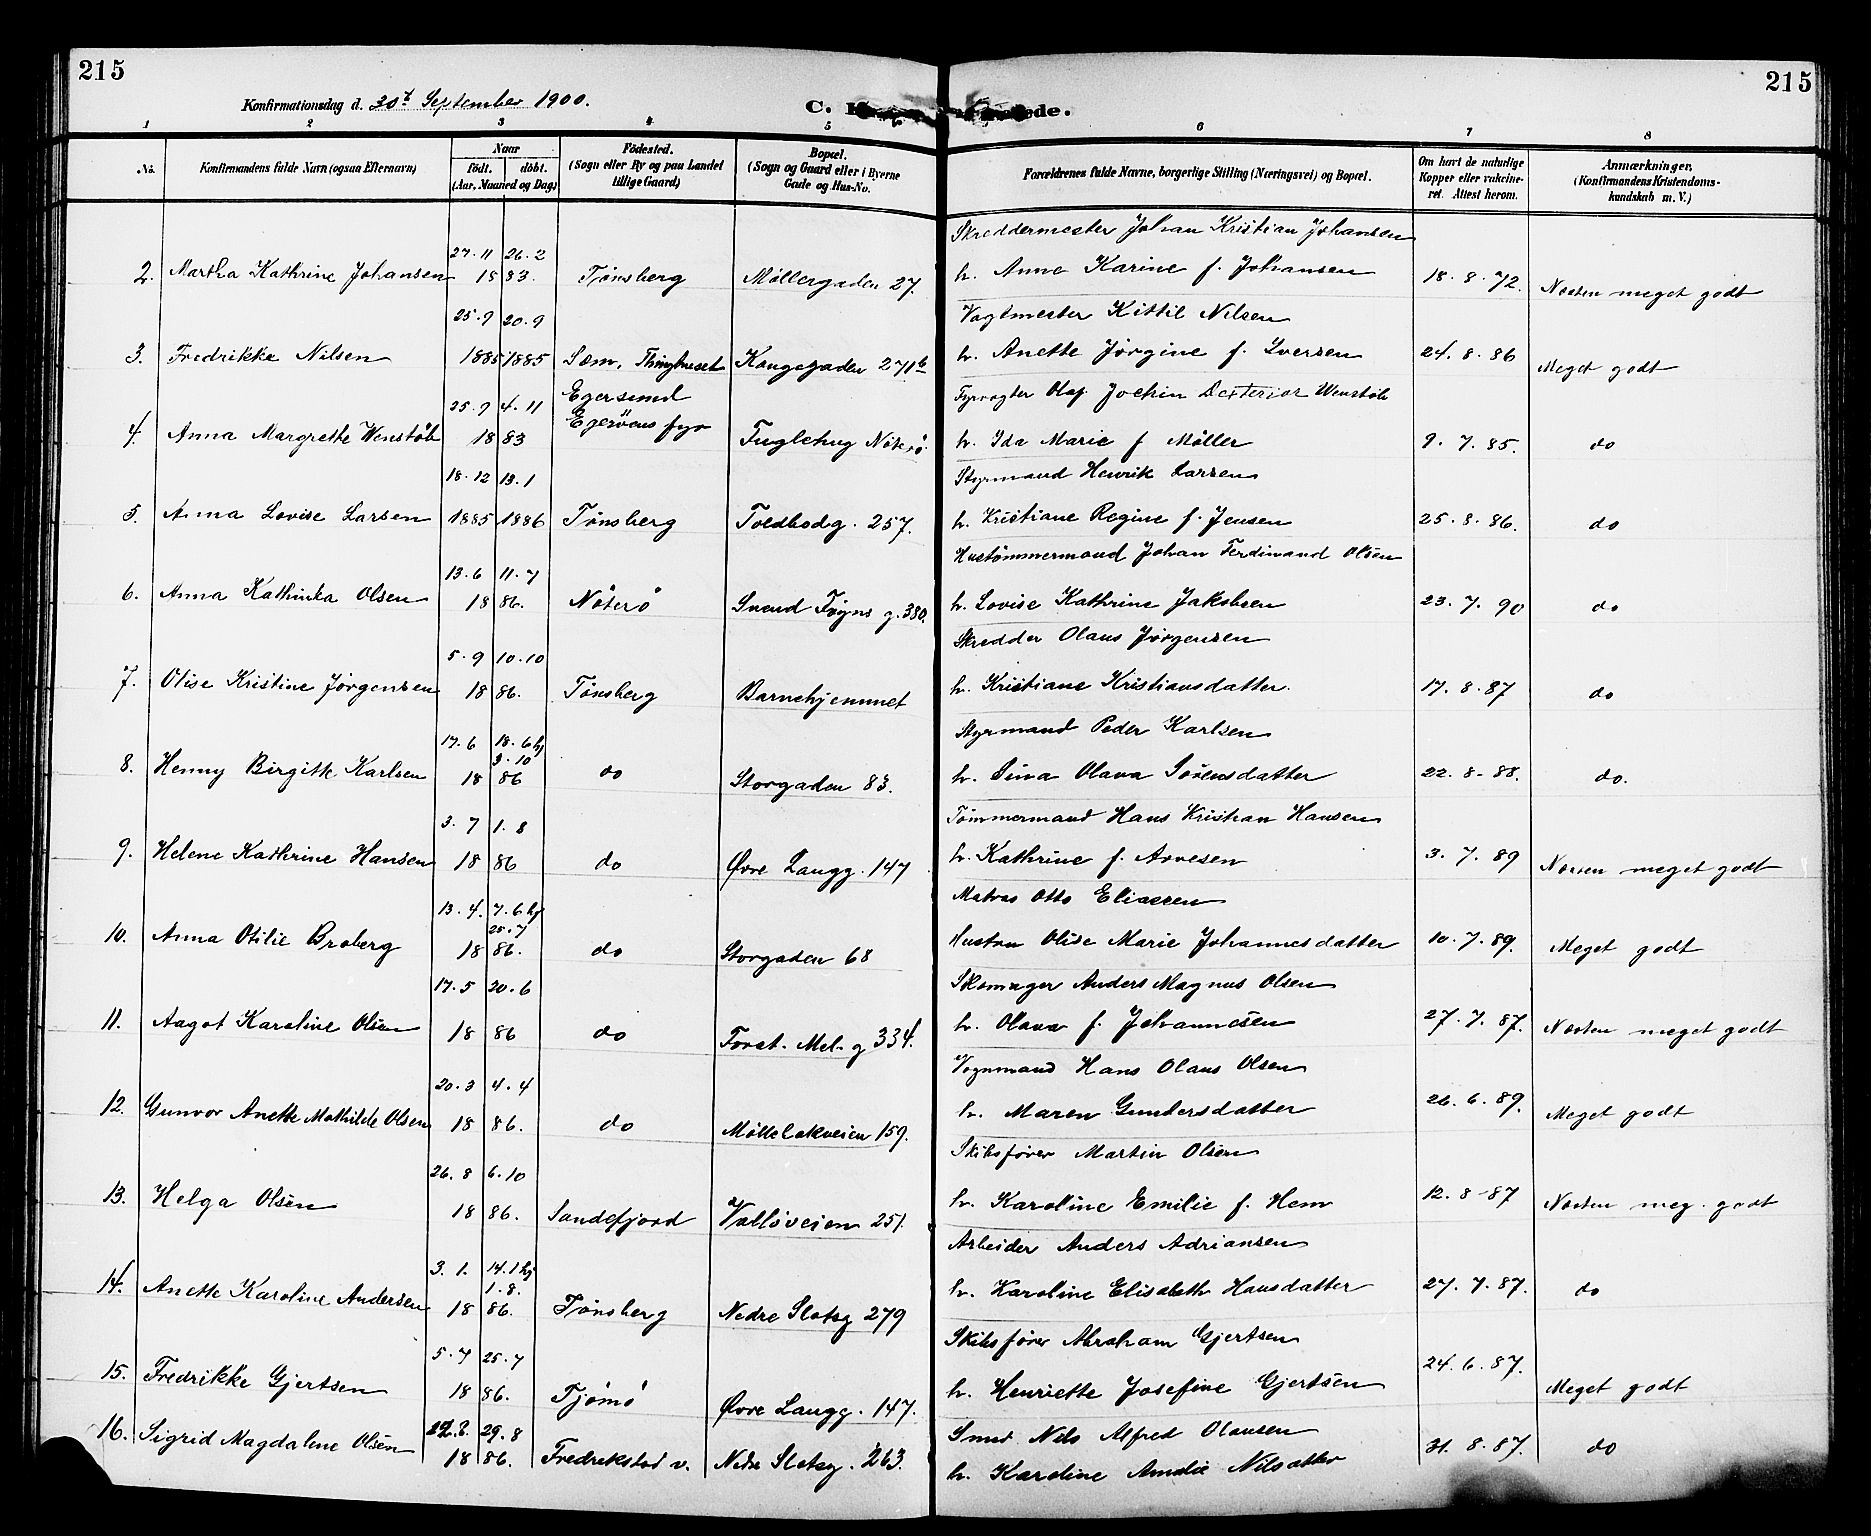 215
215
Konfirmationsdag d. 30t September 1900.
C.
1 2 3 4 5 6 7 8
No.
Konfirmandens fulde Navn (ogsaa Efternavn)
Naar
födt. döbt.
(Aar, Maaned og Dag)
Födested.
(Sogn eller By og paa Landet
tillige Gaard)
Bopæl.
(Sogn og Gaard eller i Byerne
Gade og Hus-No.
Forældrenes fulde Navne, borgerlige Stilling (Næringsvei) og Bopæl.
Om havt de naturlige
Kopper eller vakcine-
ret. Attest herom.
Anmærkninger,
(Konfirmandens Kristendoms-
kundskab m. V.)
Skreddermester Johan Kristian Johansen
27.11 26.2
2. Martha Kathrine Johansen 18 83. Tönsberg Möllergaden 27. h. Anne Karine f. Johansen 18.8.72. Næsten meget godt
25.9 20.9 Vagtmester Kittil Nilsen
3. Fredrikke Nilsen 1885 1885 Sæm, Thinghuset Kongegaden 271b h. Anette Jörgine f. Iversen 24.8.86 Meget godt
25.9 4.11 Egersund Fyrvogter Olaf Jochim Wenstöb
4. Anna Margrethe Wenstöb 18 83 Egeröens fyr Fuglehug Nöterö. h. Ida Marie f Möller 9.7.85. do
18.12 13.1 Styrmand Henrik Larsen
5. Anna Lovise Larsen 1885 1886 Tönsberg Toldbodg. 257. h. Kristiane Regine f. Jensen 25.8.86. do
13.6 11.7 Hustömmermand Johan Ferdinand Olsen
6. Anna Kathinka Olsen 18 86. Nöterö Svend Föyns g. 380. h. Lovise Kathrine Jakobsen 23.7.90 do
5.9 10.10 Skredder Olaus Jörgensen
7. Olise Kristine Jörgensen 18 86. Tönsberg Barnehjemmet h. Kristiane Kristiansdatter. 17.8.87 do
17.6 18.6 hj 3.10 Styrmand Peder Karlsen
8. Henny Birgitte Karlsen 18 86 do Storgaden 83. h. Sina Olava Sörensdatter 22.8-88. do.
3.7 1.8 Tömmermand Hans Kristian Hansen
9. Helene Kathrine Hansen 18 86 do Øvre Langg. 147 h. Kathrine f. Arvesen 3.7.89 Næsten meget godt
13.4. 7.6 hj 25.7 Matros Otto Eliassen
10. Anna Otilie Broberg 18 86. do Storgaden 68 Hustru Olise Marie Johannesdatter 10.7.89. Meget godt
17.5 20.6 Skomager Anders Magnus Olsen
11. Aagot Karoline Olsen 18 86 do Forst. Mel. g 334. h. Olava f. Johannesen 27.7.87. Næsten meget godt
20.3 4.4 Vognmand Hans Olaus Olsen
12. Gunvor Anette Mathilde Olsen 18 86. do Möllebakveien 159. h. Maren Gundersdatter 26.6.89. Meget godt
26.8 6.10 Skibsförer Martin Olsen
13. Helga Olsen 18 86. Sandefjord Vallöveien 251. h. Karoline Emilie f. Hem 12.8-87 Næsten meg. godt
3.1. 14.1 hj 1.8. Arbeider Anders Adriansen
14. Anette Karoline Andersen 18 86. Tönsberg Nedre Slotsg 279 h. Karoline Elisabeth Hansdatter 27.7.87. do
5.7 25.7 Skibsförer Abraham Gjertsen
15. Fredrikke Gjertsen 18 86. Tjömö Øvre Langg. 147. h. Henriette Josefine Gjertsen 24.6.87. Meget godt
29.8 Smed Nils Alfred Olausen
16. Sigrid Magdalene Olsen 18 86. Fredrikstad v. Nedre Slotsg. 263. h. Karoline Amalie Nilsdatter 31.8.87. do